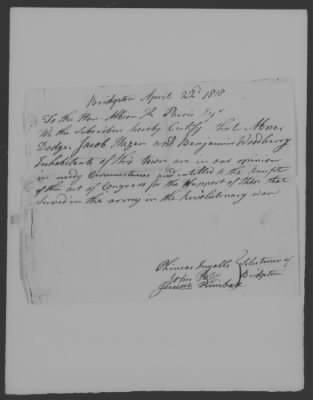 Bridgton April 22d 1818
To the Hon. Albion K Parris Esqr
We the Subscribers hereby Certify that Abner
Dodge Jacob Hazen and Benjamin Woodbery
Inhabitants of this town are in our opinion
in needy Circumstances and intitled to the benefit
of the act of Congress for the Support of those that
Served in the army in the Revolutionary war
Phineas Ingalls Selectmen of
John Bridgton
Kimball